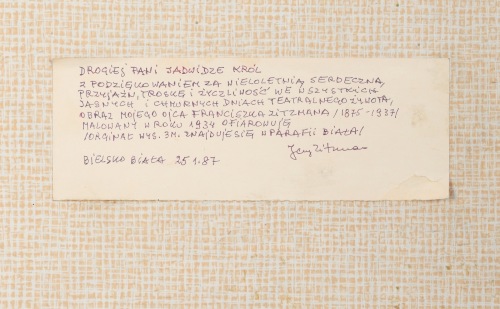 DROGIEJ PANI JADWIDZE KRÓL
Z PODZIĘKOWANIEM ZA WIELOLETNIĄ, SERDECZNĄ,
PRZYJAŹŃ, TROSKĘ I ŻYCZLIWOŚĆ WE WSZYSTKICH
JASNYCH I CHMURNYCH DNIACH TEATRALNEGO ŻYWOTA,
OBRAZ MOJEGO OJCA FRANCISZKA ZITZMANA /1875-1937/
MALOWANY W ROKU 1934 OFIAROWUJĘ
/ORGINAŁ WYS. 3M. ZNAJDUJE SIĘ W PARAFII BIAŁA/
BIELSKO BIAŁA 25.1.87
Jerzy Zitzman